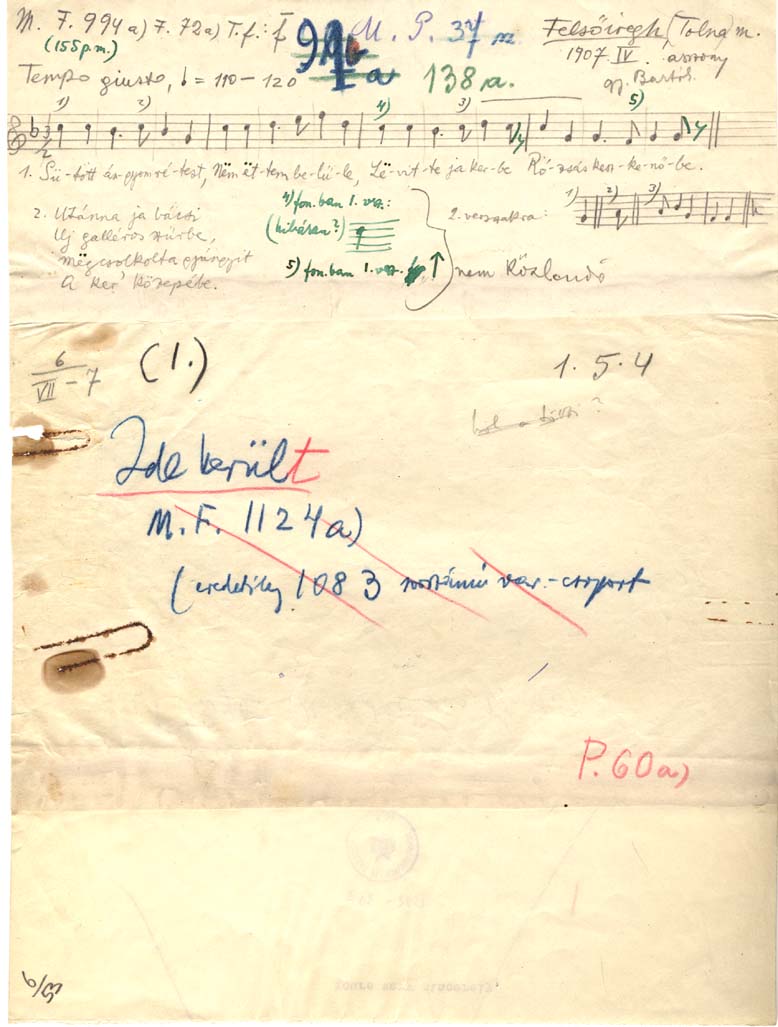 M. F. 994 a) F. 72a) T. f.: f M. P. 37 Felsőiregh (Tolna) m.
(155 p.m.) 1907. IV. asszony
Tempo giusto, ♩ = 110 – 120 a 138 a. gy. Bartók
1) 2) 4) 3) 5)
1. Sü-tött án-gyom ré-test, Nëm ët-tem be-lű-le, Lë-vit-te ja ker-be Ró-zsás ken-ke-nő-be.
2. Utánna ja bácsi
Uj galléros szűrbe,
mëgcsolkolta
A ker' közepébe.
4) fon.ban 1. vsz.:
(hibásan?)
5) fon.ban 1. vsz.
2. verszakra: 1) 2) 3)
nem közlendő
6/VII – 7 (1.) 1. 5. 4
Ide került
M. F. 1124a)
(eredetileg 1083 var.-csoport
P. 60a)